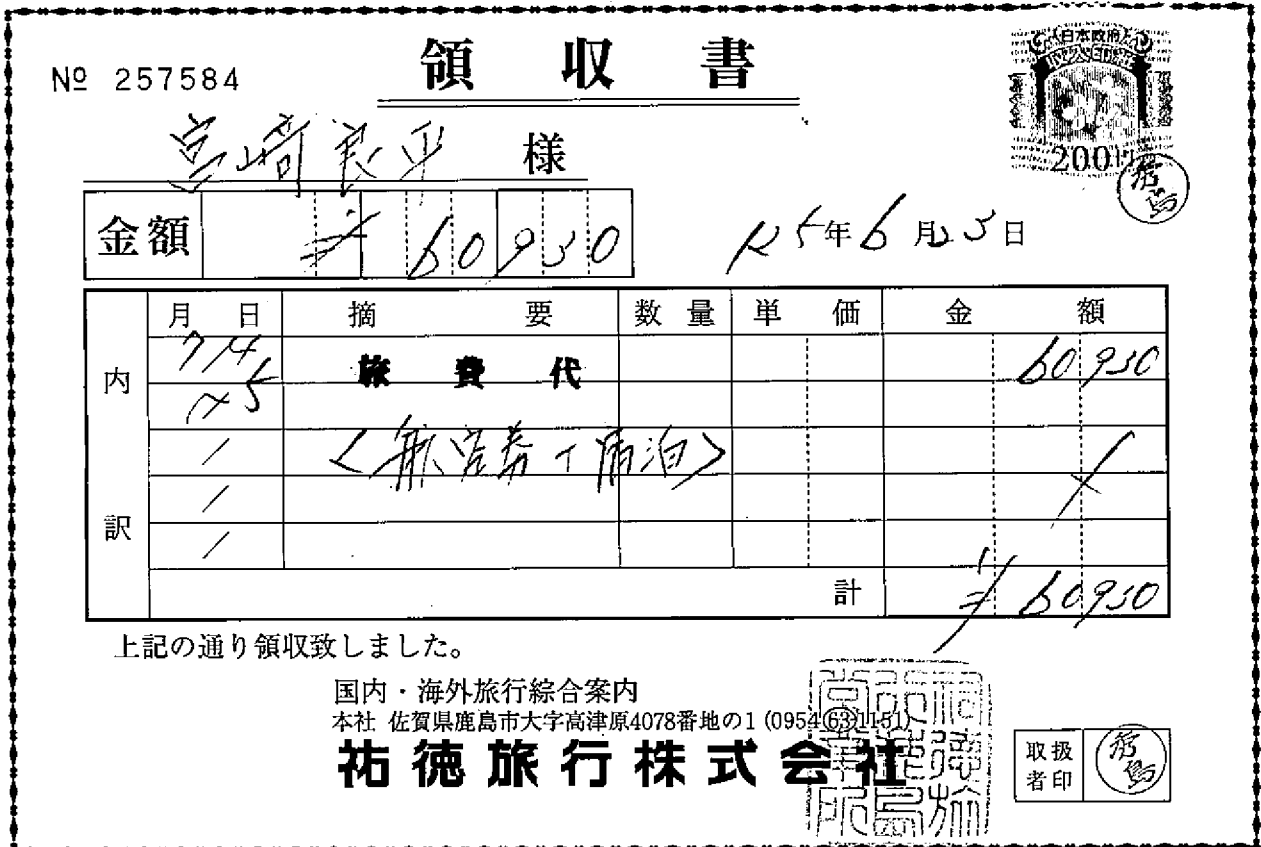 領収書
№ 257584
宮﨑良平 様
日本政府
収入印紙
200円
金額 ¥60930
25年6月25日
内訳
月 日 摘要 数量 単価 金額
7/4 旅費代 60930
5
<航空券+宿泊>
計 ¥60930
上記の通り領収致しました。
国内・海外旅行綜合案内
本社 佐賀県鹿島市大字高津原4078番地の1 (0954(63)1151)
祐徳旅行株式会社
取扱者印